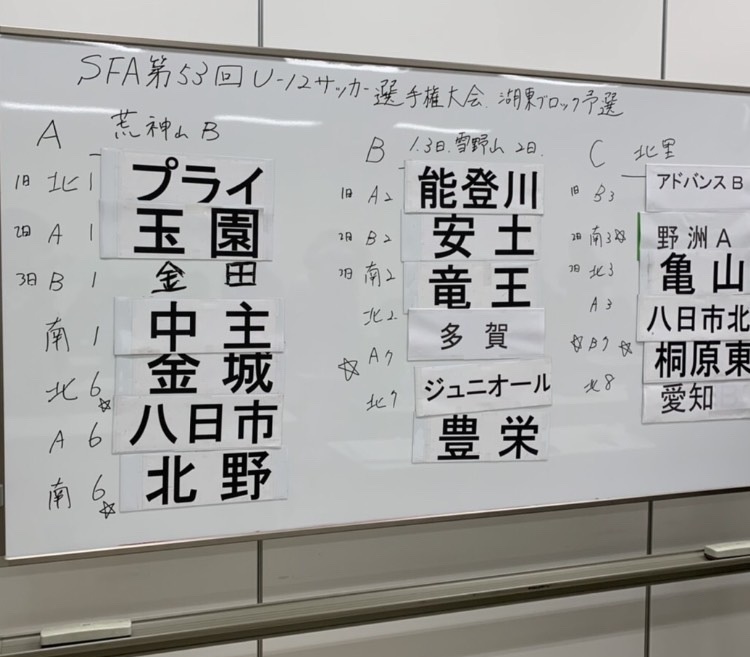 SFA第53回U-12サッカー選手権大会 湖東ブロック予選
A 荒神山B
1日 北1 プライ
2日 A1 玉園
3日 B1 金田
南1 中主
北6☆ 金城
A6 八日市
南6☆ 北野
B 1.3日.雪野山 2日.
1日 A2 能登川
2日 B2 安土
3日 南2 竜王
北2 多賀
☆A7 ジュニオール
北7 豊栄
C 北里
1日 B3 アドバンスB
2日 南3☆ 野洲A
3日 北3 亀山
A3 八日市北
☆B7☆ 桐原東
北8 愛知